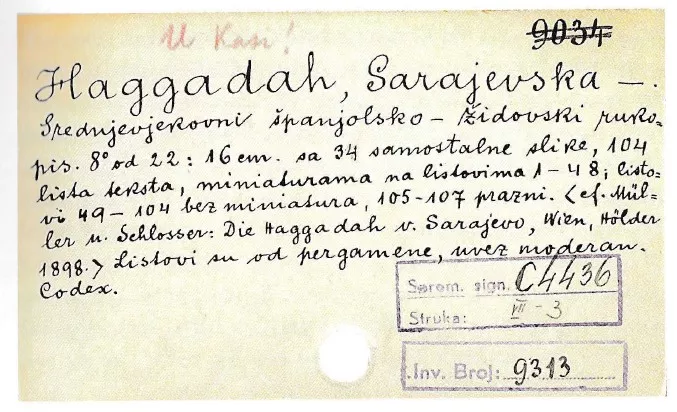 U Kasi!
9034
Haggadah, Sarajevska —.
Srednjevjekovni španjolsko – židovski ruko=
pis. 8° od 22 : 16 cm. sa 34 samostalne slike, 104
lista teksta, miniaturama na listovima 1–48; listo=
vi 49–104 bez miniatura, 105–107 prazni. <cf. Mül=
ler u. Schlosser: Die Haggadah v. Sarajevo, Wien, Hölder
1898.> Listovi su od pergamene, uvez moderan.
Codex.
Savrem. sign. C4436
Struka: VII – 3
Inv. Broj: 9313